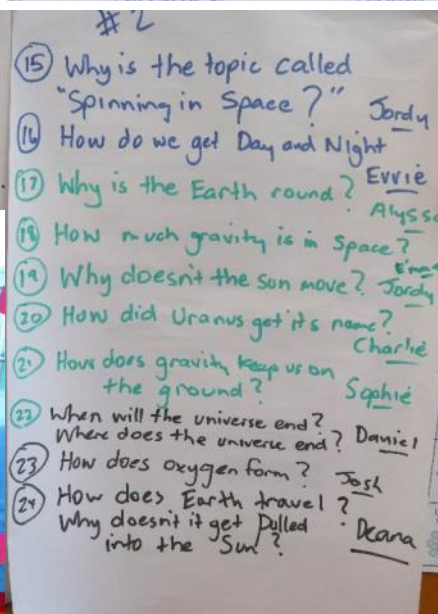 #2
15 Why is the topic called
"Spinning in Space?" Jordy
16 How do we get Day and Night
Evvie
17 Why is the Earth round?
Alyssa
18 How much gravity is in Space?
19 Why doesn't the sun move? Jordy
20 How did Uranus get it's name?
Charlie
21 How does gravity keep us on
the ground? Sophie
22 When will the universe end?
Where does the universe end? Daniel
23 How does oxygen form? Josh
24 How does Earth travel?
Why doesn't it get Pulled
into the Sun? Deana